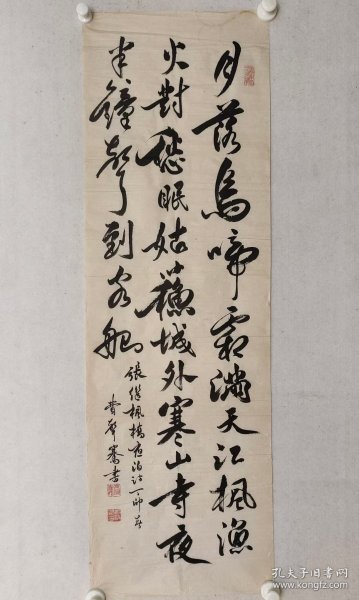 月落烏啼霜滿天江楓漁
火對愁眠姑蘇城外寒山寺夜
半鐘聲到客船
張继楓橋夜泊诗丁卯春
曹聲書
孔夫子旧书网